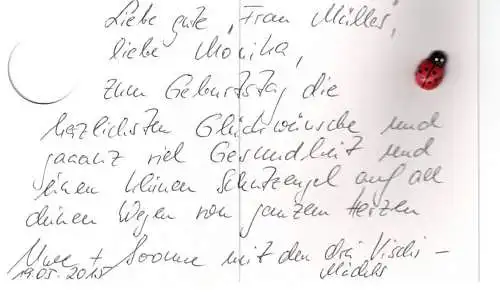 Liebe gute, Frau Müller,
liebe Monika,
zum Geburtstag die
herzlichsten Glückwünsche und
gaaanz viel Gesundheit und
einen kleinen Schutzengel auf all
deinen Wegen von ganzem Herzen
Uwe + mit den drei
19.05.2015 Mädels